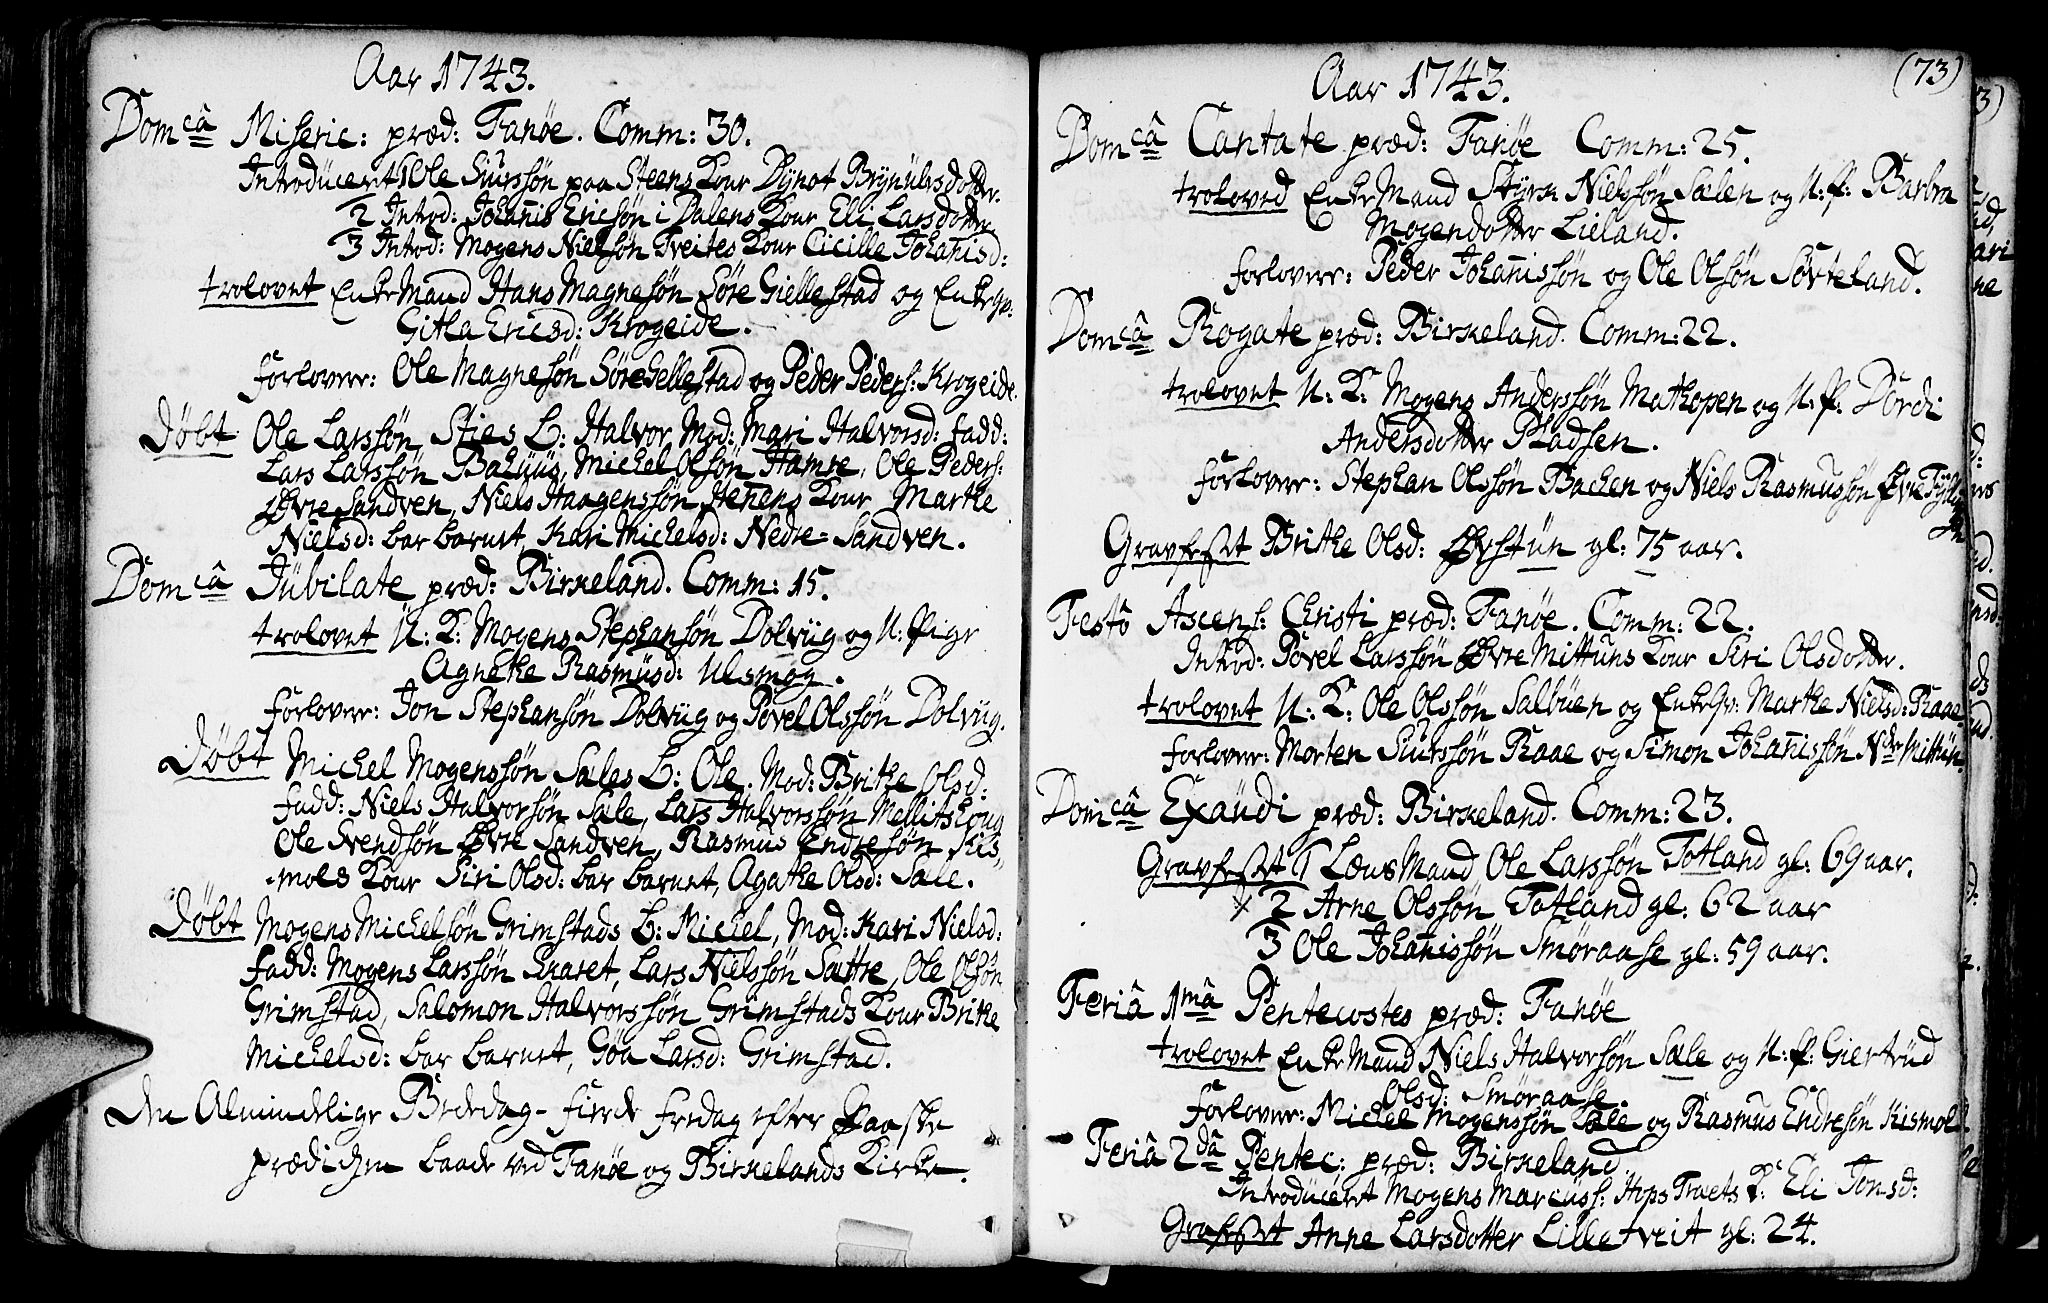 Aar 1743.
Domcâ Miseric: præd: Fanöe. Comm: 30.
Introduceret 1 Ole Siurssön paa Steens Kour Dÿnot Brÿnülvsdotter.
2 Introd: Johanis Ericsön i Dalens Kour Eli Larsdotter
3 Introd: Mogens Nielsön Tveites Kour Cicille Johanisd:
trolovet EnkeMand Hans Magnesön Söre Giellestad og Enkeqv:
Gitla Ericsd: Krogeide.
Forlovere: Ole Magnesön Söre Gellestad og Peder Peders: Krogeide.
Döbt Ole Larssön Sties B: Halvor, Mod: Mari Halvorsd: Fadd:
Lars Larssön Bahuus, Michel Olsön Hamre, Ole Peders:
Øvre Sandven, Niels Haagenssön Kour, Marthe
Nielsd: bar barnet, Kari Michelsd: Nedre-Sandven.
Domcâ Jübilate præd: Birkeland. Comm: 15.
trolovet U: K: Mogens Stephansön Dolvüg og U: Pige
Agnethe Rasmüsd: Ulsmog.
Forlovere: Jon Stephansön Dolvüg og Povel Olssön Dolvüg.
Döbt Michel Mogenssön Sæles B: Ole. Mod: Brithe Olsd:
Fadd: Niels Halvorsön Sæle, Lars Halvorssön Mellitshoug
Ole Svendsön Øvre Sandven, Rasmus Endresön Kis,
mols Kour Siri Olsd: bar barnet, Agathe Olsd: Sæle.
Döbt Mogens Michelsön Grimstads B: Michel, Mod: Kari Nielsd:
Fadd: Mogens Larssön Skaret, Lars Nielssön Sættre, Ole Olsön
Grimstad, Salomon Halvorssön Grimstads Kour Brithe
Michelsd: bar barnet, Göa Larsd: Grimstad.
Den Almindelige Bededag - fierde fredag efter Paaske
prædichen baade ved Fanöe og Birkelands Kirke.
Aar 1743. (73)
Domcâ Cantate præd: Fanöe Comm: 25.
troloved EnkeMand Stÿrk Nielssön Sælen og U: P: Barbra
Mogendotter Lieland.
Forlovere: Peder Johanissön og Ole Olsön Sörteland.
Domcâ Rogate præd: Birkeland. Comm: 22.
trolovet U: K: Mogens Anderssön Mathopen og U: P: Dordi
Andersdotter Pladsen.
Forlovere: Stephan Olssön Bachen og Niels Rasmussön Øvre
Gravfest Brithe Olsd: Øvstün gl: 75 aar.
Festô Ascens: Christi præd: Fanöe. Comm: 22.
Introd: Povel Larssön Øvre Mittuns Kour Siri Olsdotter.
trolovet U: K: Ole Olssön Salbüen og Enkeqv: Marthe Nielsd: Raae.
Forlovere: Morten Siurssön Raae og Simon Johanissön Ndre Mittün.
Domcâ Exaudi præd: Birkeland. Comm: 23.
Gravfest 1 LænsMand Ole Larssön Totland gl: 69 aar.
2 Arne Olssön Totland gl: 62 aar
3 Ole Johanissön Smöraase gl: 59 aar.
Feriâ 1mâ Pentecostes præd: Fanöe
trolovet EnkeMand Niels Halvorsön Sæle og U: P: Giertrüd
Olsd: Smöraase.
Forlovere: Michel Mogenssön Sæle og Rasmus Endresön Kismol
Feriâ 2dâ Pentec: præd: Birkeland
Introduceret Mogens Marcüss: Hops Træets K: Eli Jonsd:
Grafest Anne Larsdotter Lilletveit gl: 24.